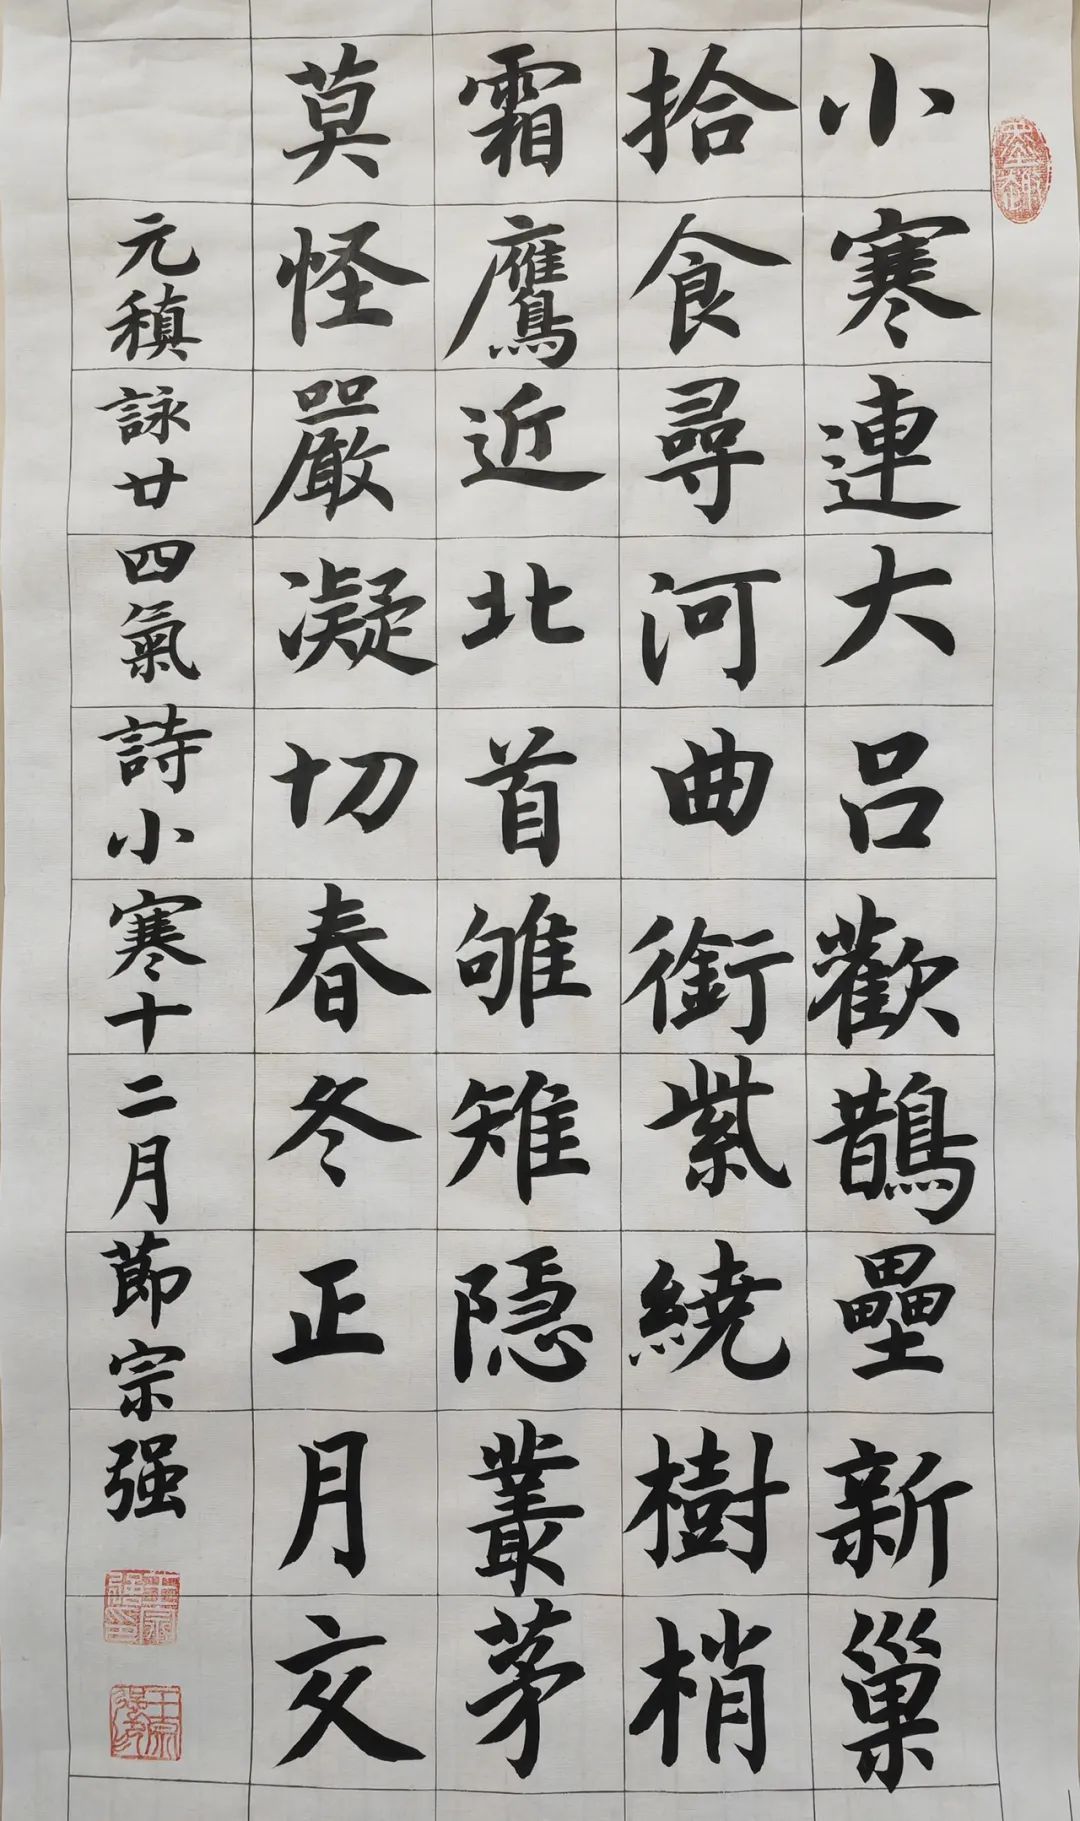 小寒連大呂歡鵲壘新巢
拾食尋河曲銜紫繞樹梢
霜鷹近北首雊雉隱叢茅
莫怪嚴凝切春冬正月交
元稹詠廿四氣詩小寒十二月節宗强